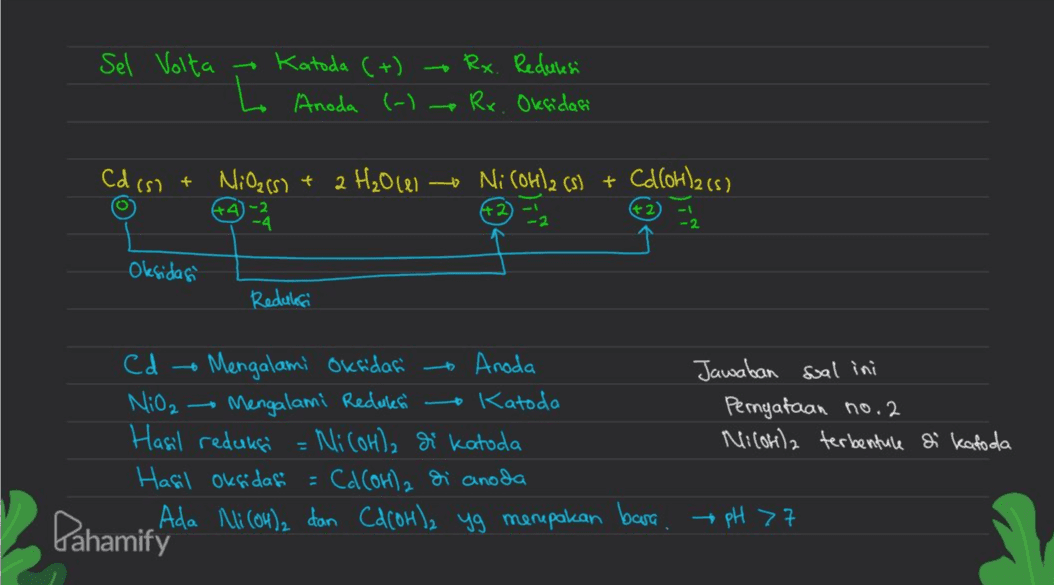 Sel Volta → Katoda (+) → Rx. Reduksi
↳ Anoda (-) → Rx. Oksidasi
Cd (s) + NiO₂(s) + 2 H₂O(l) → Ni(OH)₂ (s) + Cd(OH)₂(s)
0 +4 -2 +2 -1 +2 -1
-4 -2 -2
Oksidasi
Reduksi
Cd → Mengalami Oksidasi → Anoda
NiO₂ → Mengalami Reduksi → Katoda
Hasil reduksi = Ni(OH)₂ di katoda
Hasil oksidasi = Cd(OH)₂ di anoda
Ada Ni(OH)₂ dan Cd(OH)₂ yg merupakan basa. → pH > 7
Jawaban soal ini
Pernyataan no.2
Ni(OH)₂ terbentuk di katoda
Pahamify